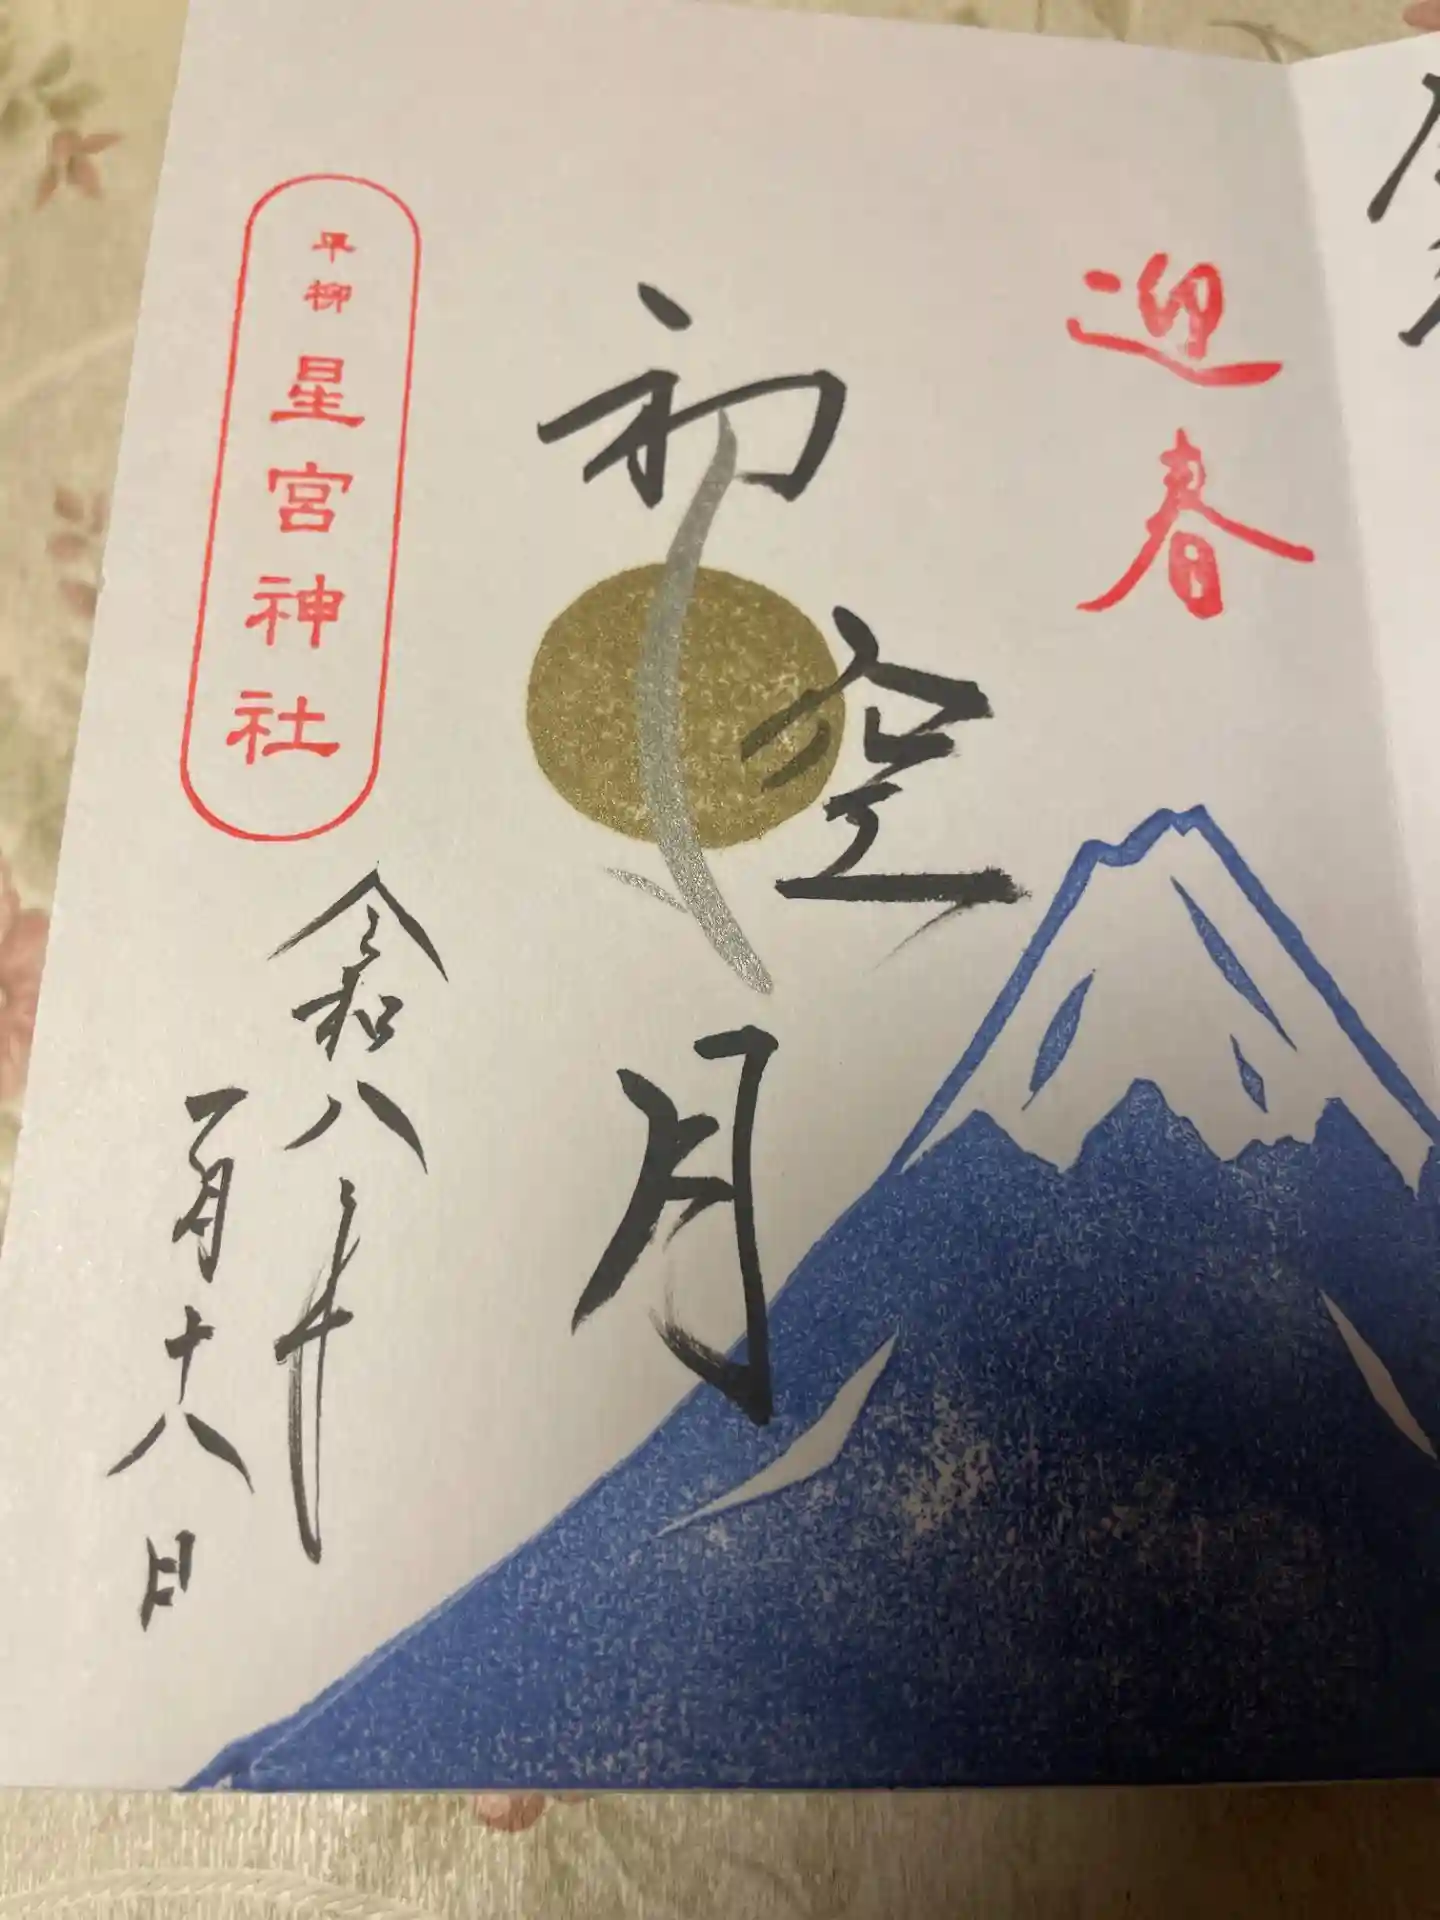 迎春
初空月
令和八年
一月十八日
平柳星宮神社